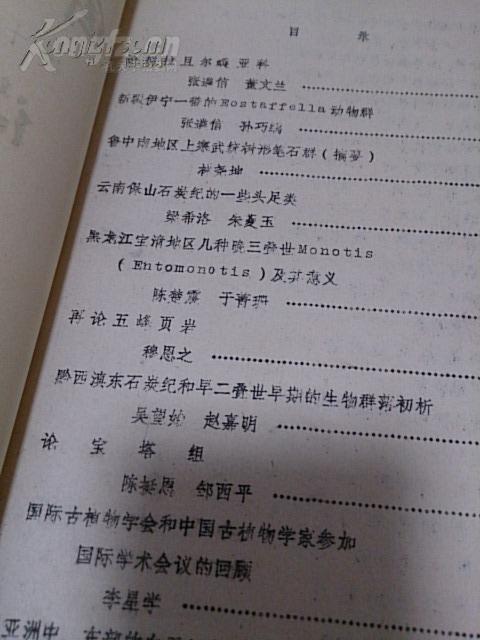 目 录
且尔蜓亚科
张遴信 董文兰
新疆伊宁一带的Eostaffella动物群
张遴信 孙巧缡
鲁中南地区上寒武统树形笔石群（摘要）
林尧坤
云南保山石炭纪的一些头足类
梁希洛 朱夔玉
黑龙江宝清地区几种晚三叠世Monotis
（Entomonotis）及其意义
陈楚震 于菁珊
再论五峰页岩
穆恩之
黔西滇东石炭纪和早二叠世早期的生物群落初析
吴望始 赵嘉明
论宝塔组
陈挺恩 邹西平
国际古植物学会和中国古植物学家参加
国际学术会议的回顾
李星学
亚洲中、东部